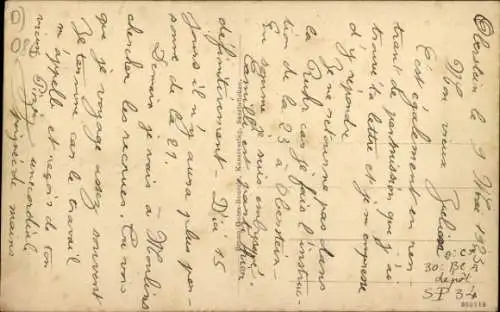 Oberstein le 9
Mon vieux Julien
C'est également en ren
trant de permission que j'ai
trouvé ta lettre et je m'empresse
d'y répondre
Je ne retourne pas dans
la Ruhr car je fais l'instruc-
tion de la 23 à Oberstein -
En somme je suis embusqué.
Camille est parti hier
définitivement - D'ici 15
jours il n'y aura plus per-
sonne de la 21.
Demain je vais à Moulins
chercher les recrues. Tu vois
que je voyage assez souvent
Je termine car le travail
m'appelle et reçois de ton
vieux une cordiale
poignée de mains
9: Cie
30: BCA
dépôt
SP 34